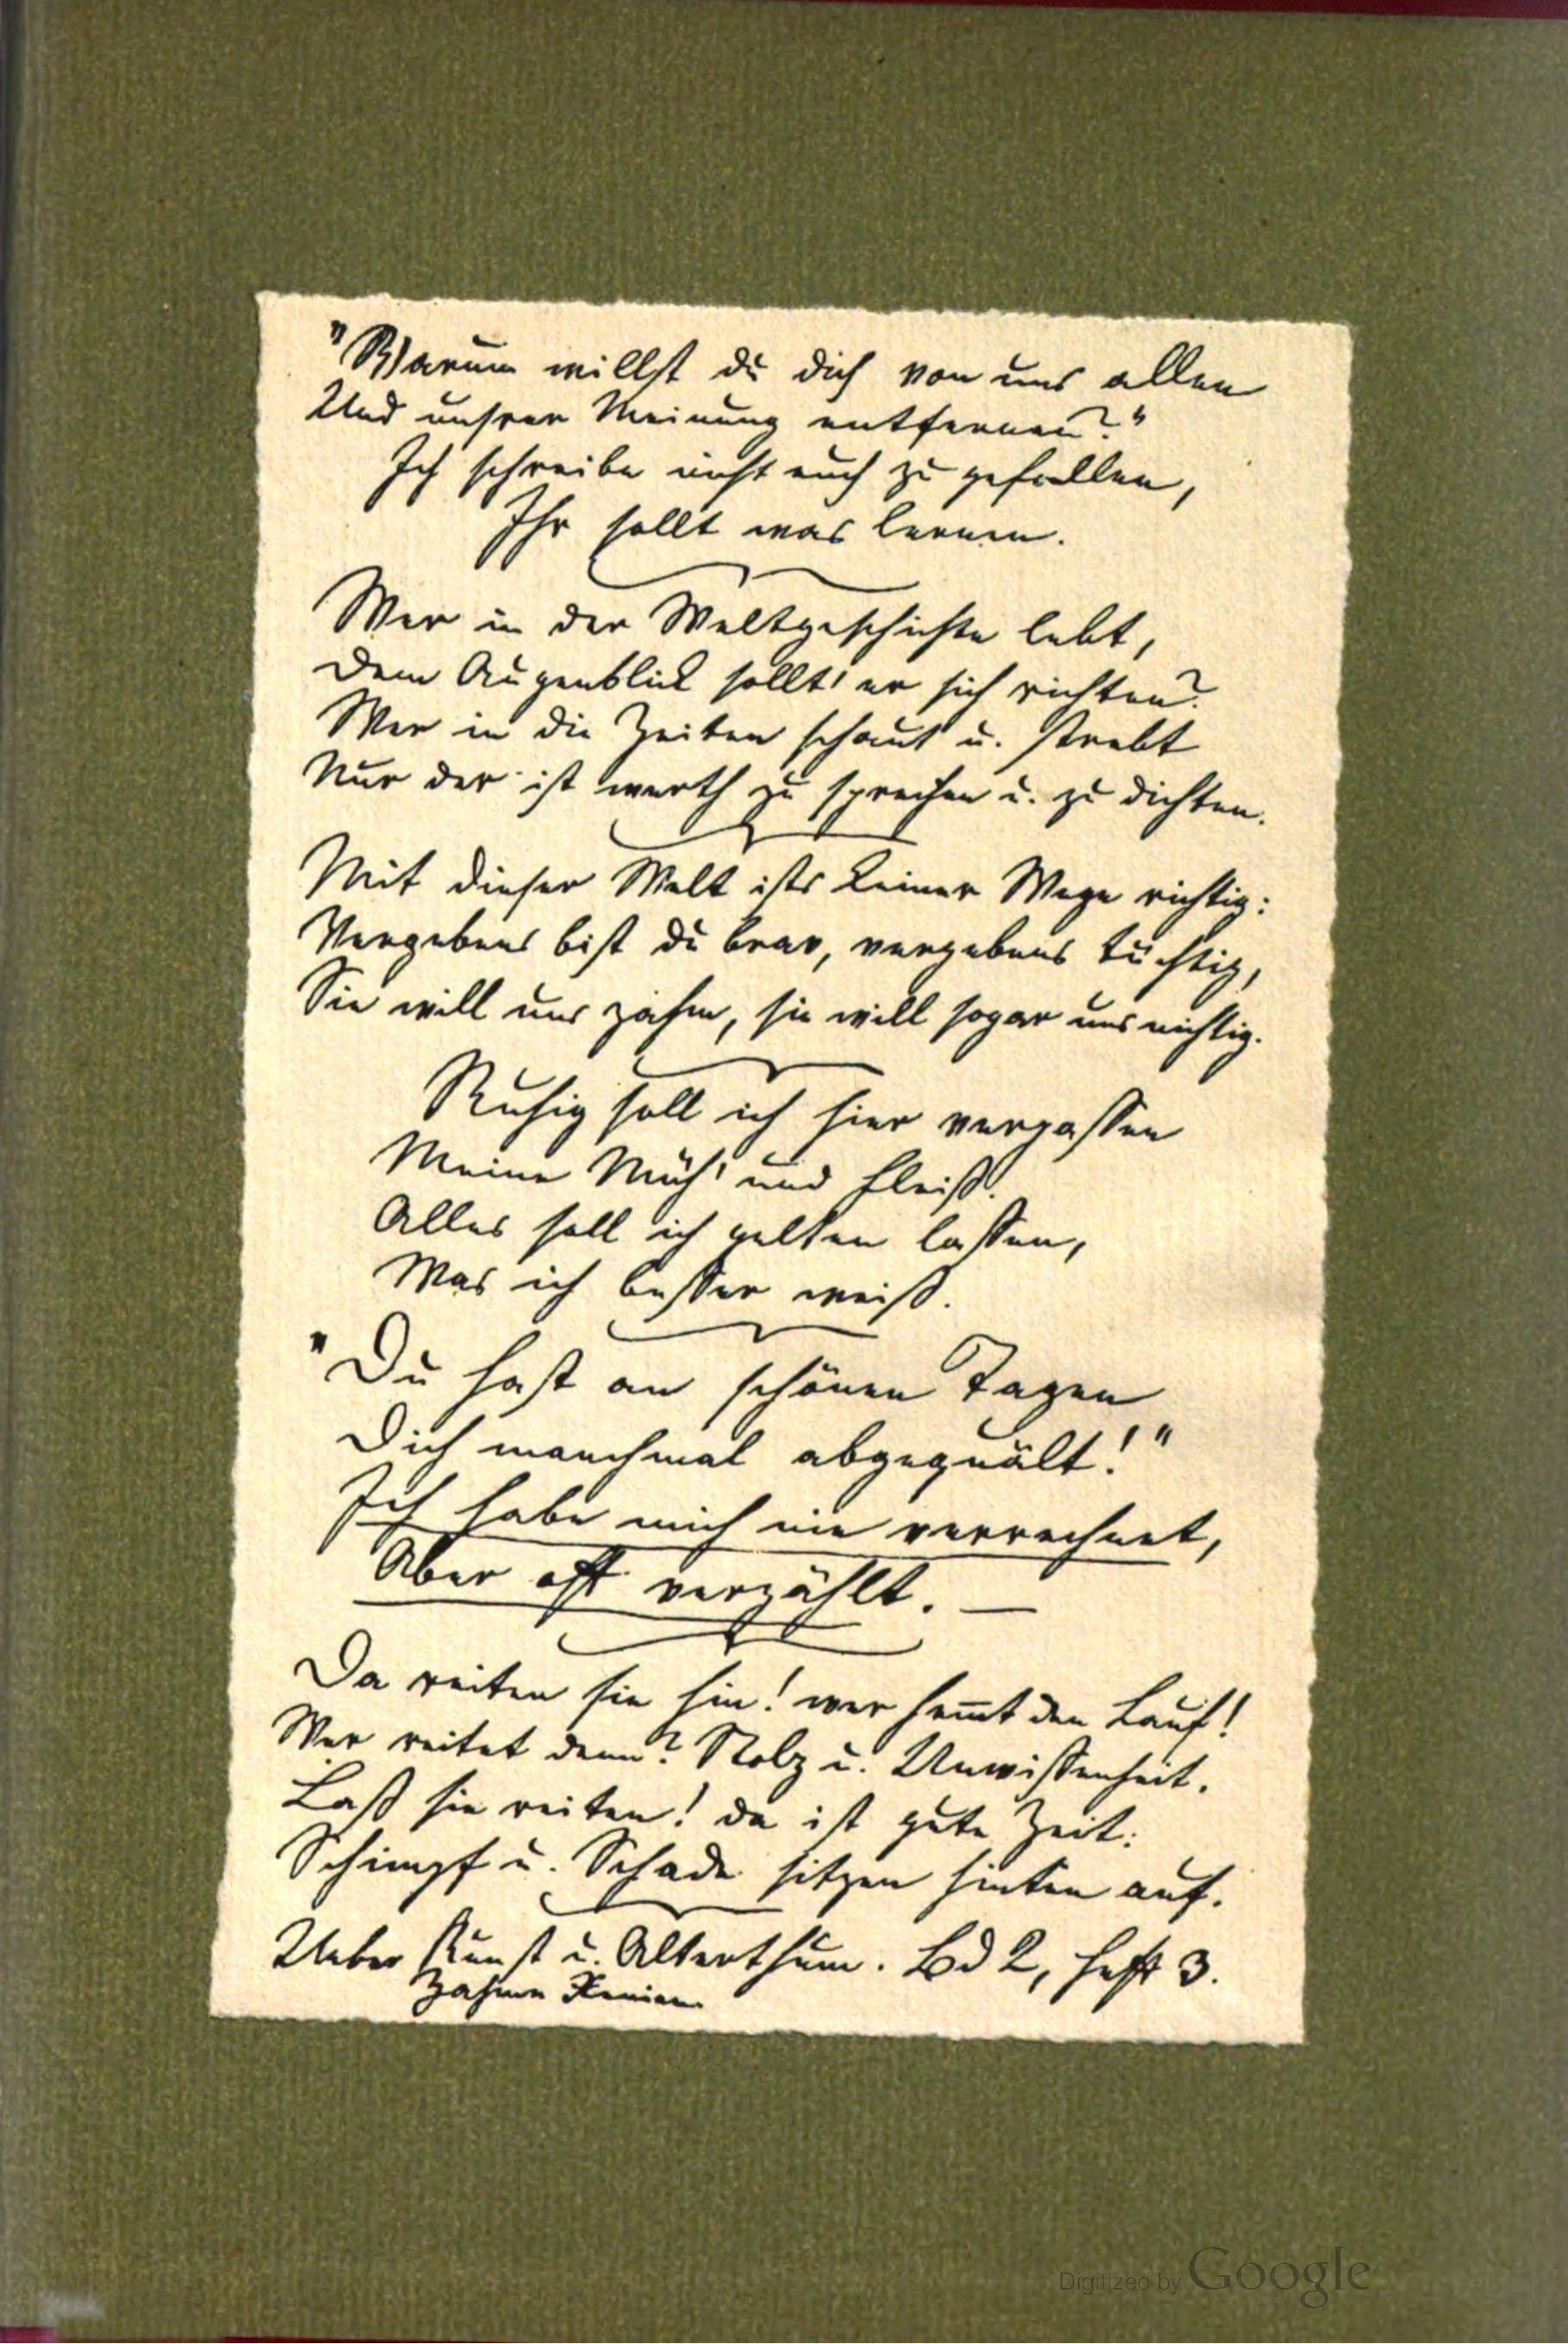 "Warum willst du dich von uns allen
Und unsrer Meinung entfernen?"
Ich schreibe nicht euch zu gefallen,
Ihr sollt was lernen.
Wer in der Weltgeschichte lebt,
Dem Augenblick sollt' er sich richten?
Wer in die Zeiten schaut u. strebt
Nur der ist werth zu sprechen u. zu dichten.
Mit dieser Welt ists keiner Wege richtig:
Vergebens bist du brav, vergebens tüchtig,
Sie will uns zahm, sie will sogar uns nichtig.
Ruhig soll ich hier verpassen
Meine Müh' und Fleiß.
Alles soll ich gelten lassen,
Was ich besser weiß.
"Du hast an schönen Tagen
Dich manchmal abgequält!"
Ich habe mich nie verrechnet,
Aber oft verzählt. —
Da reiten sie hin! wer hem̅t den Lauf!
Wer reitet denn? Stolz u. Unwissenheit.
Laß sie reiten! da ist gute Zeit:
Schimpf u. Schade sitzen hinten auf.
Ueber Kunst u. Alterthum. Bd 2, Heft 3.
Zahme Xenien
Digitized by Google